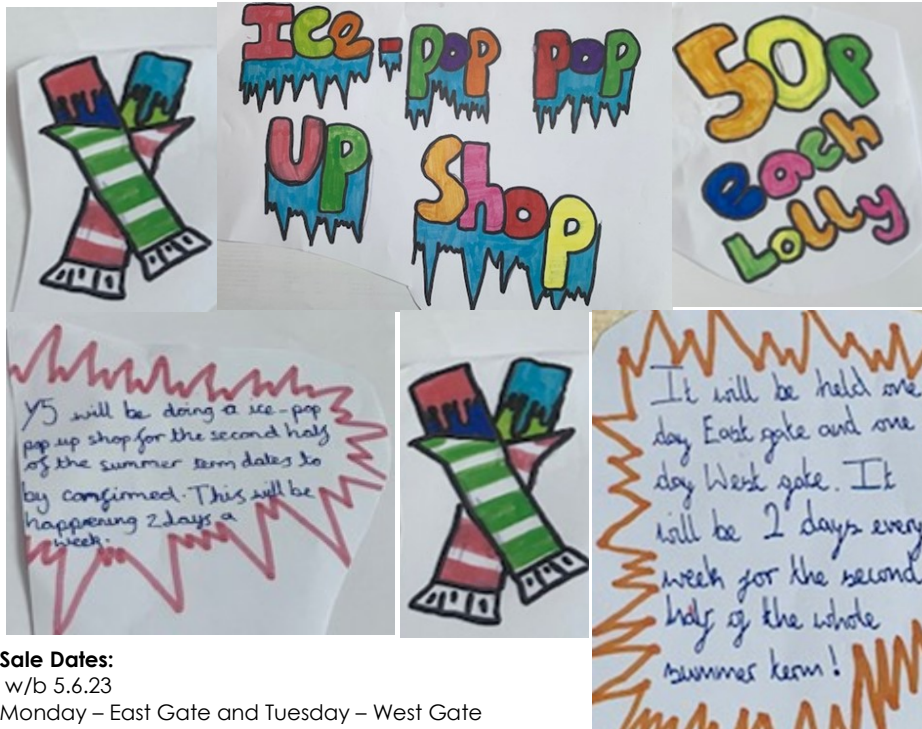 Ice-pop pop
Up Shop
50p
each
Lolly
Y5 will be doing a ice-pop
pop up shop for the second half
of the summer term dates to
by comfirmed. This will be
happening 2 days a
week.
It will be held one
day East gate and one
day West gate. It
will be 2 days every
week for the second
half of the whole
summer term!
Sale Dates:
w/b 5.6.23
Monday – East Gate and Tuesday – West Gate